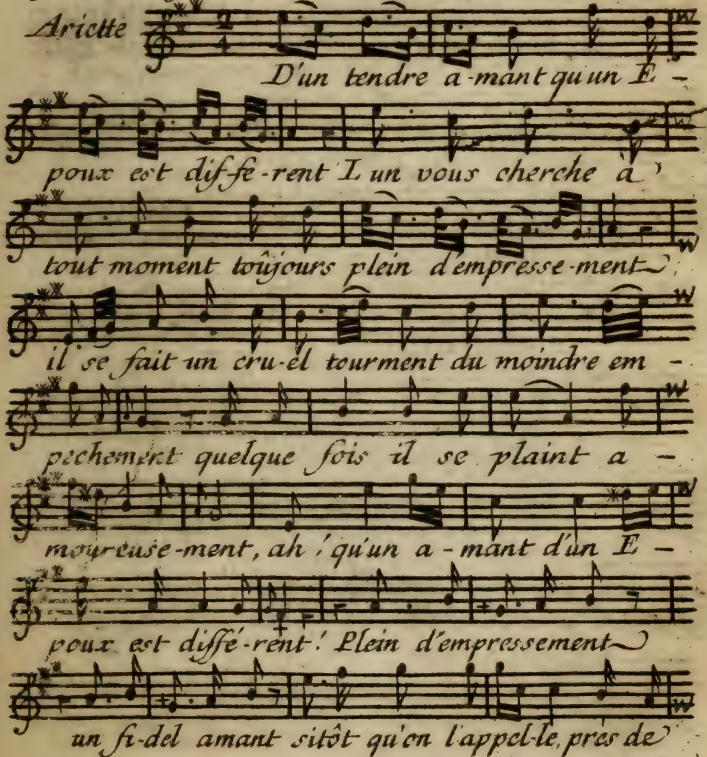 Ariette
2
4
D'un tendre a-mant qu'un E-
poux est dif-fe-rent L'un vous cherche à
tout moment toûjours plein d'empresse-ment
il se fait un cru-el tourment du moindre em-
pechement quelque fois il se plaint a-
moureuse-ment, ah! qu'un a-mant d'un E-
poux est diffé-rent! Plein d'empressement
un fi-del amant sitôt qu'on l'appel-le, près de